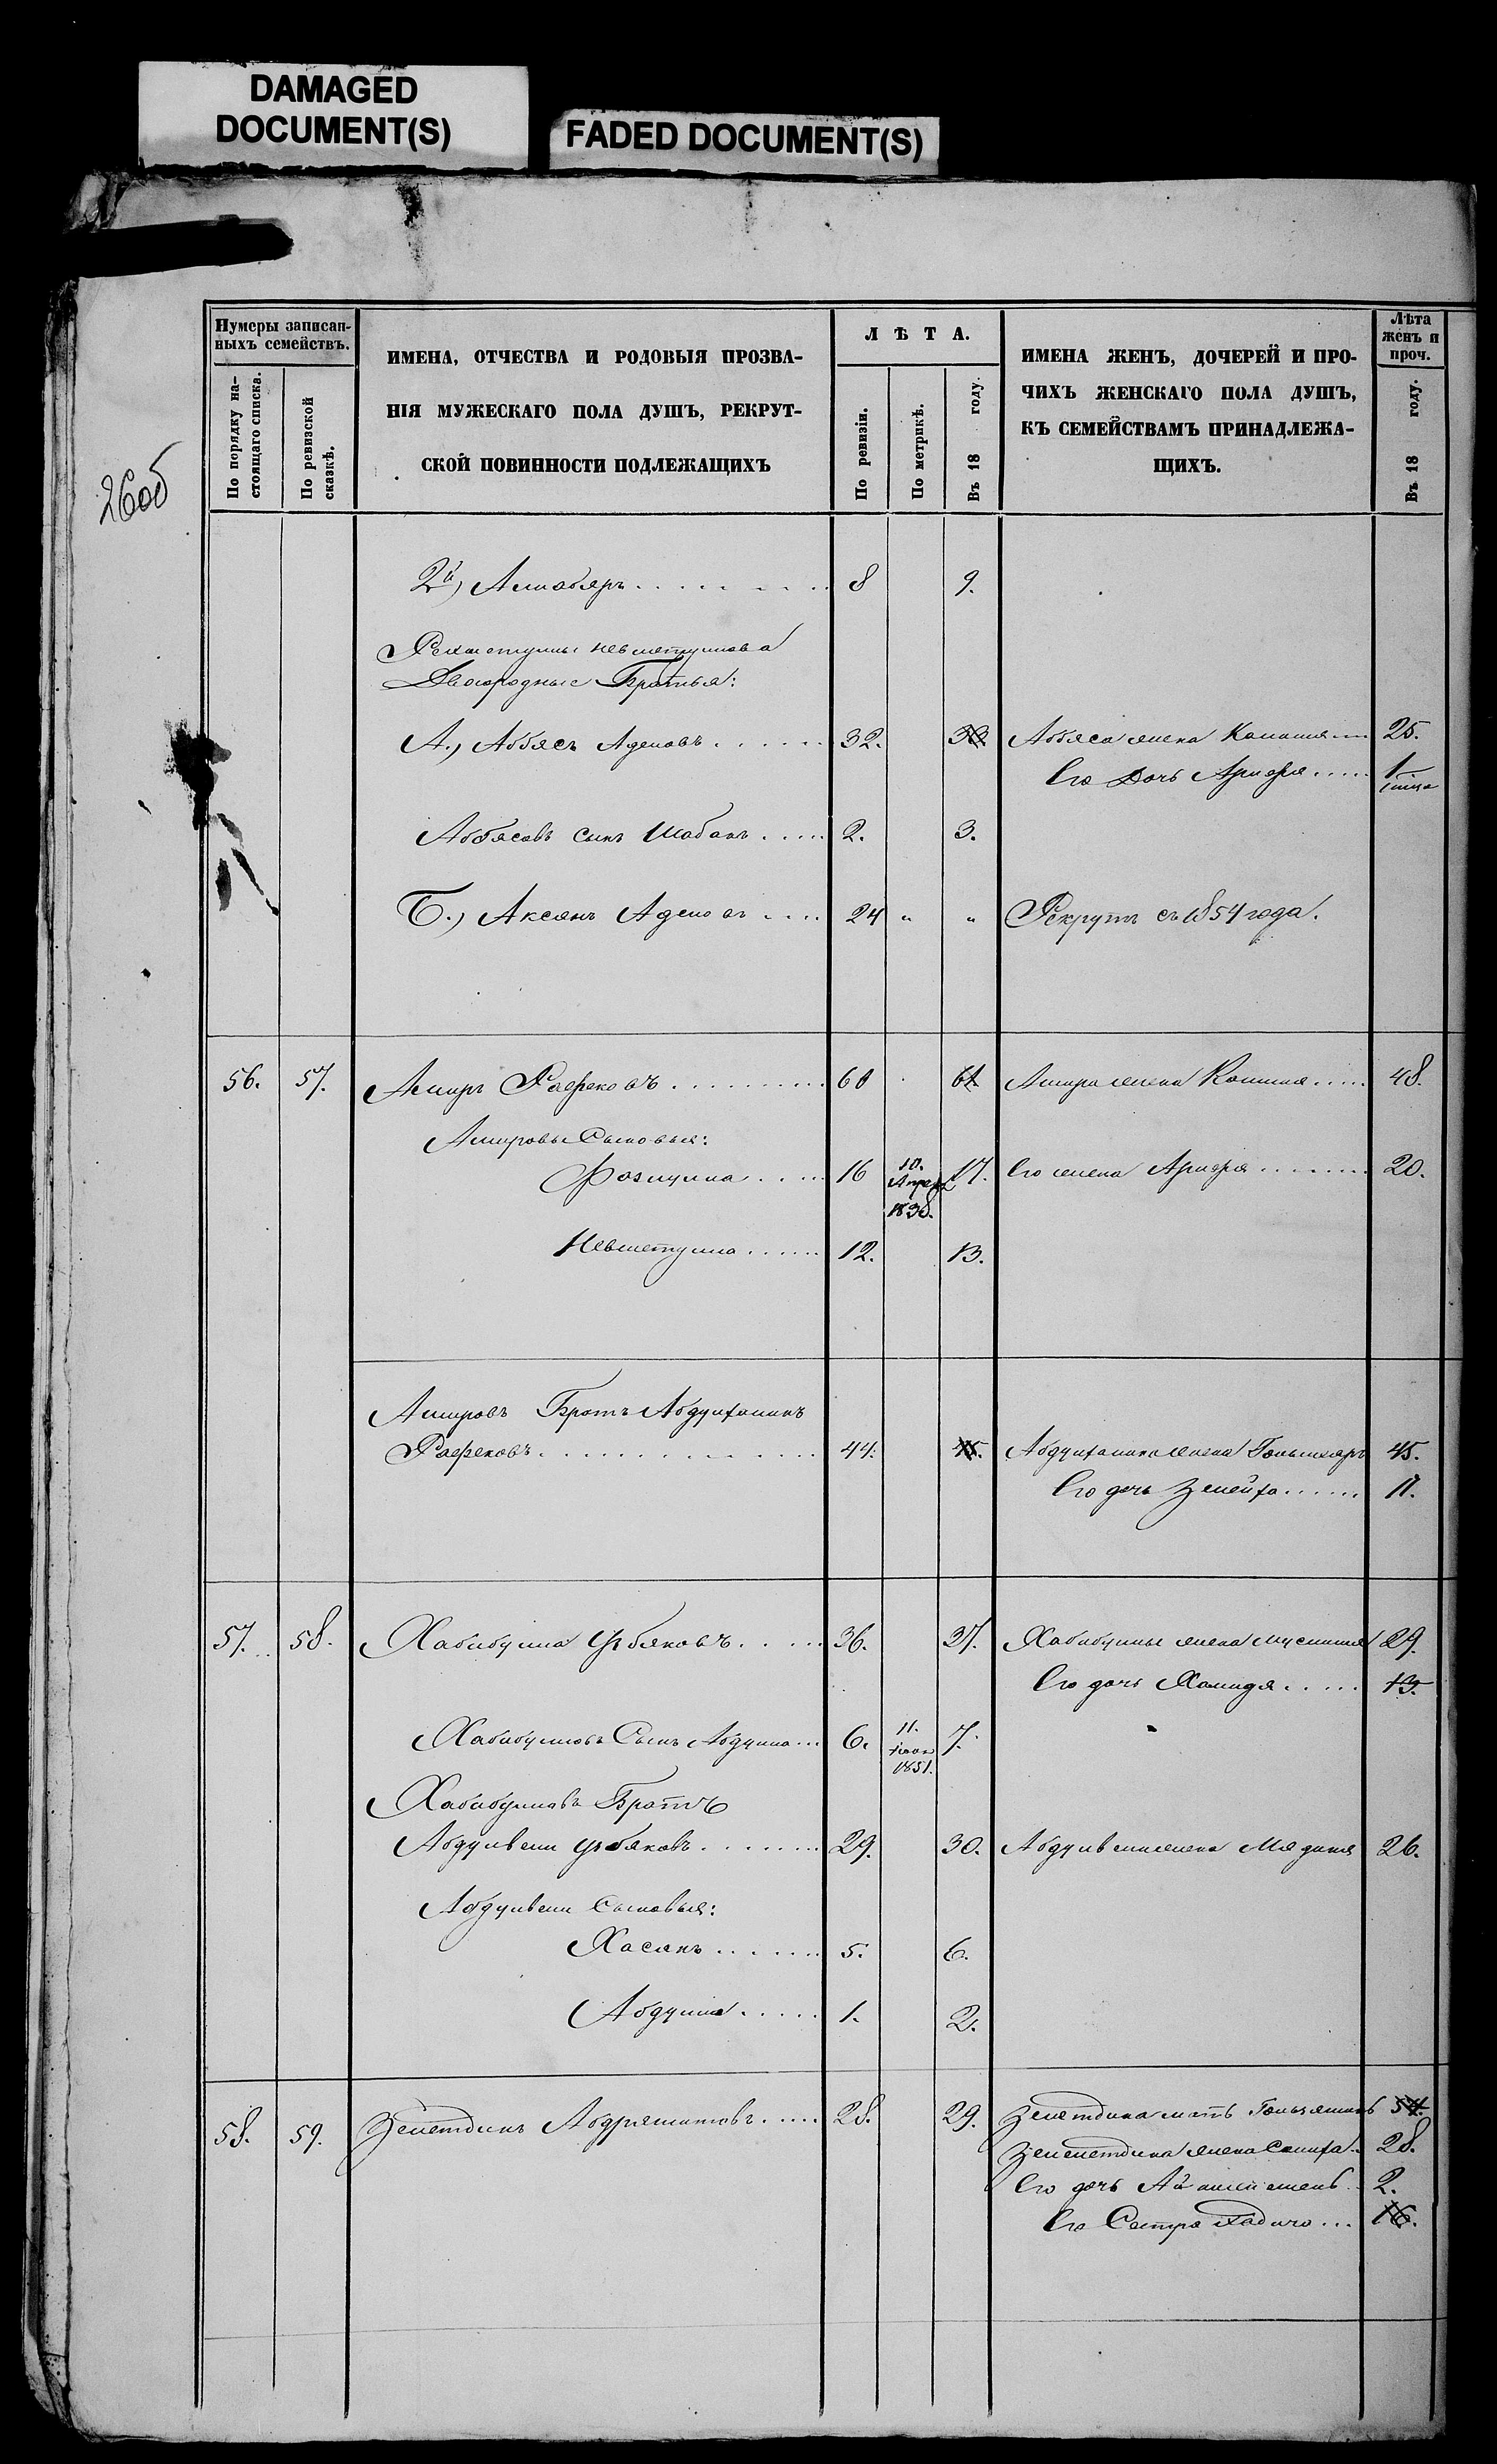 DAMAGED
DOCUMENT(S)
FADED DOCUMENT(S)
26об
Нумеры записан-
ныхъ семействъ.
По порядку на-
стоящаго списка.
По ревизской
сказкѣ.
ИМЕНА, ОТЧЕСТВА И РОДОВЫЯ ПРОЗВА-
НІЯ МУЖЕСКАГО ПОЛА ДУШЪ, РЕКРУТ-
СКОЙ ПОВИННОСТИ ПОДЛЕЖАЩИХЪ
ЛѢТА.
По ревизіи.
По метрикѣ.
Въ 18 году.
ИМЕНА ЖЕНЪ, ДОЧЕРЕЙ И ПРО-
ЧИХЪ ЖЕНСКАГО ПОЛА ДУШЪ,
КЪ СЕМЕЙСТВАМЪ ПРИНАДЛЕЖА-
ЩИХЪ.
Лѣта
женъ и
проч.
Въ 18 году.
2й) Алтабяръ 8 9.
Двоюродные Братья:
А.) Аббясъ Аделовъ 32. 33. Аббяса жена 25.
Его Дочь 1
Аббясовъ сынъ Шабанъ 2. 3.
Б.) Аксянъ Аделовъ 24 " " Рекрутъ съ 1854 года.
56. 57. Амиръ Рафековъ 60 61. Амира жена 48.
Амировы Сыновья:
Фазлулла 16 10. Апрѣля 1838. 17. Его жена 20.
Невметулла 12. 13.
Амировъ Братъ Абдулхаликъ
Рафековъ 44. 45. Абдулхалика жена 45.
Его дочь Зелейха 11.
57. 58. Хабибулла Узбяковъ 36. 37. Хабибуллы жена 29.
Его дочь Халидя 13.
Хабибулловъ Сынъ Абдулла 6. 11. 1851. 7.
Хабибулловъ Братъ
Абдулвели Узбяковъ 29. 30. Абдулвели жена Мядиня 26.
Абдулвели Сыновья:
Хасянъ 5. 6.
Абдулла 1. 2.
58. 59. Зелетдинъ Абдряшитовъ 28. 29. Зелетдина мать 54.
Зелетдина жена Салиха 28.
Его дочь 2.
Его Сестра Хадича 16.